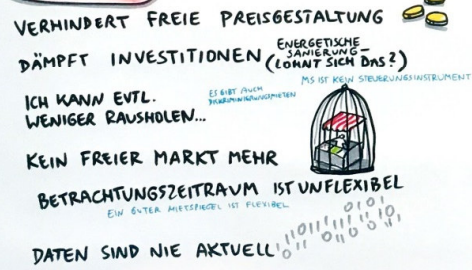 VERHINDERT FREIE PREISGESTALTUNG
DÄMPFT INVESTITIONEN (ENERGETISCHE
SANIERUNG -
LOHNT SICH DAS?)
MS IST KEIN STEUERUNGSINSTRUMENT
ES GIBT AUCH
DISKRIMINIERUNGSMIETEN
ICH KANN EVTL.
WENIGER RAUSHOLEN...
KEIN FREIER MARKT MEHR
BETRACHTUNGSZEITRAUM IST UNFLEXIBEL
EIN GUTER MIETSPIEGEL IST FLEXIBEL
DATEN SIND NIE AKTUELL